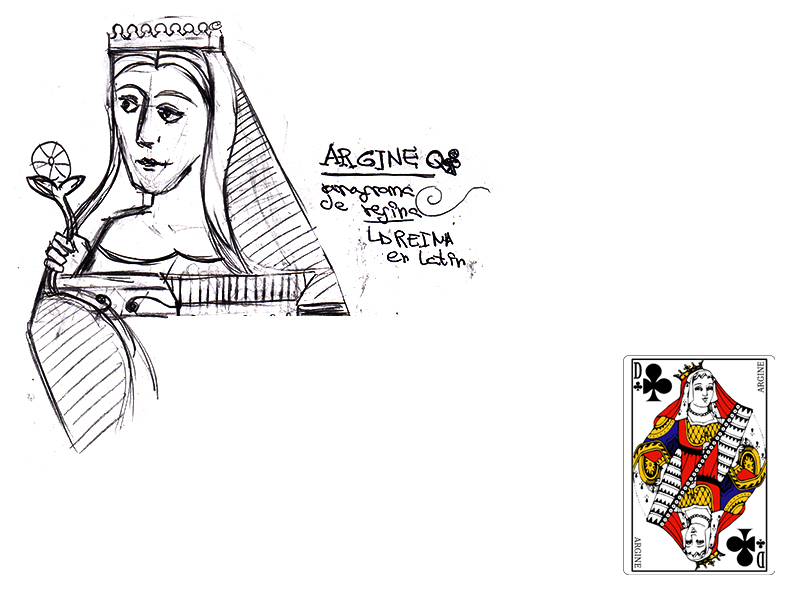 ARGINE Q♣
anagrama
de regina
LA REINA
en Latin
D
ARGINE
ARGINE
D